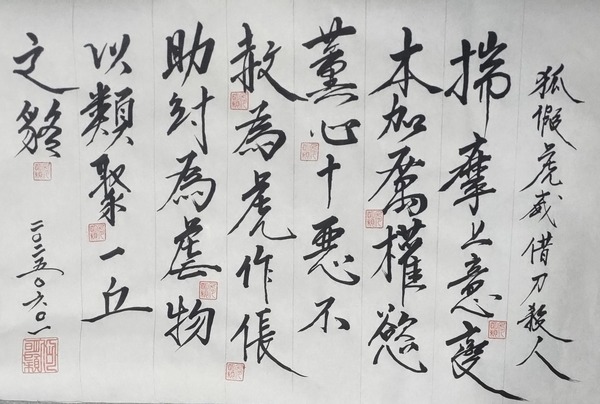 狐假虎威借刀殺人
揣摩上意變
本加厲權慾
薰心十惡不
赦為虎作倀
助紂為虐物
以類聚一丘
之貉
二〇二五〇六〇一